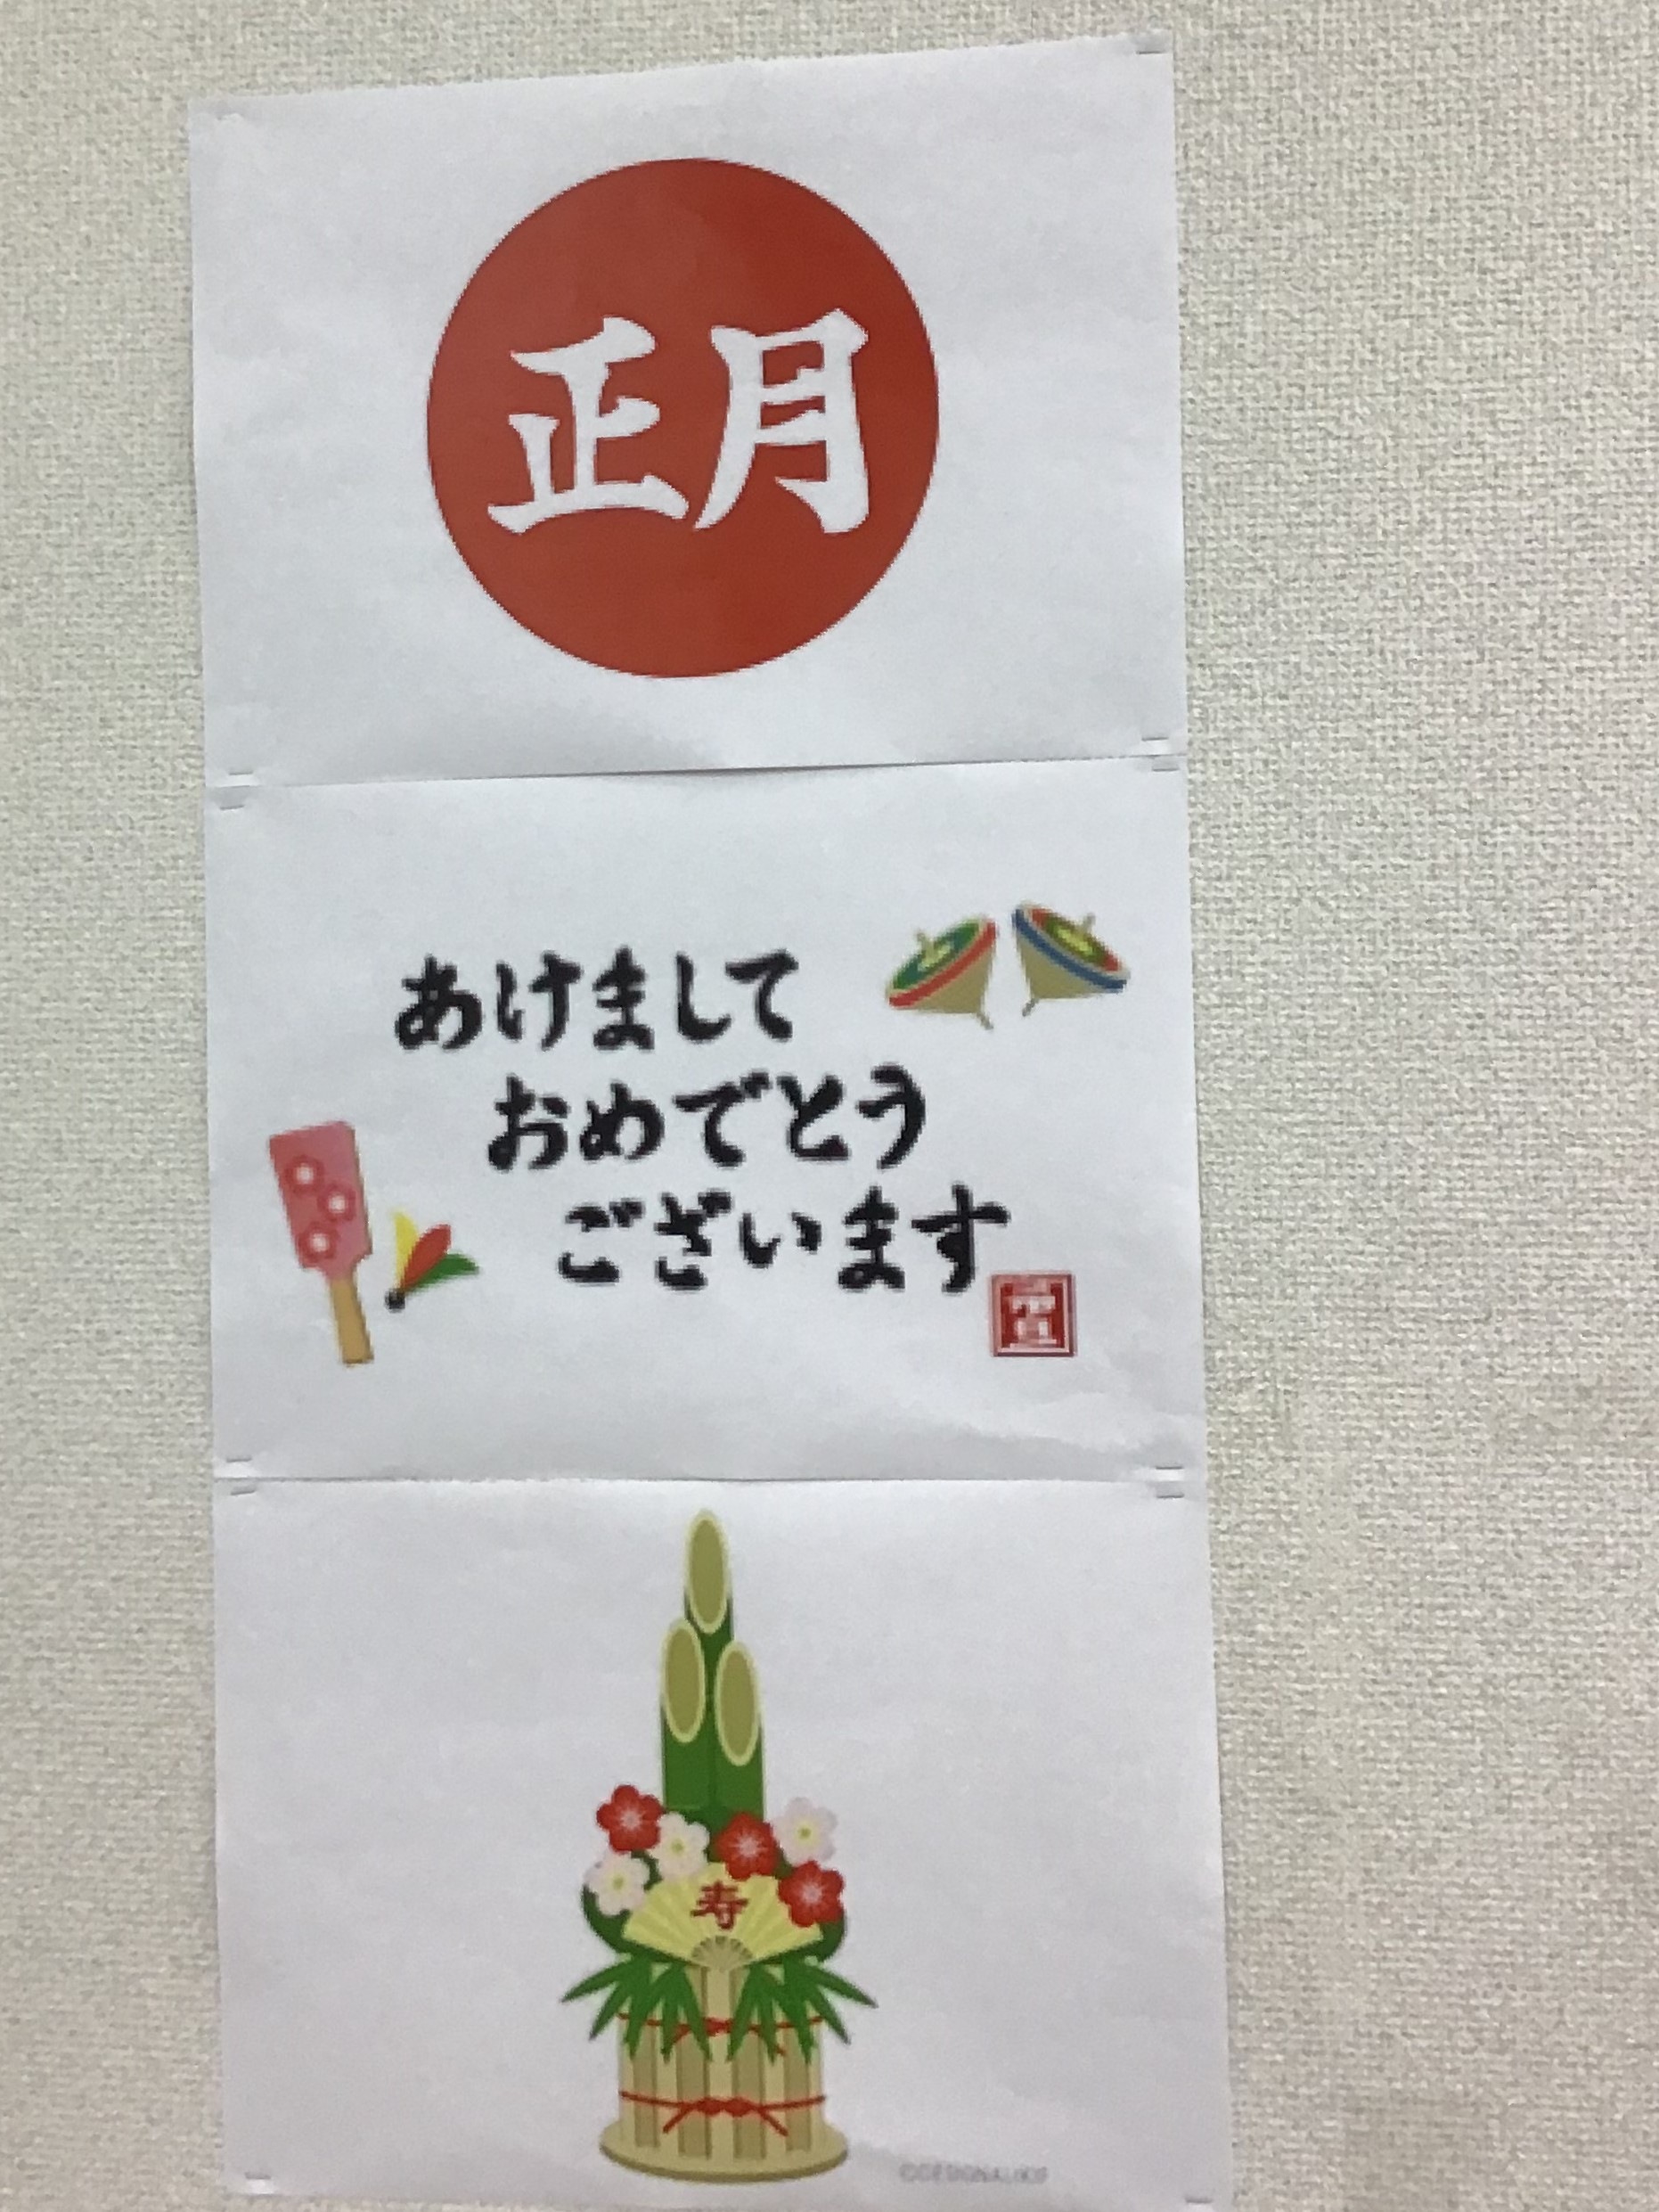 正月
あけまして
おめでとう
ございます
寿